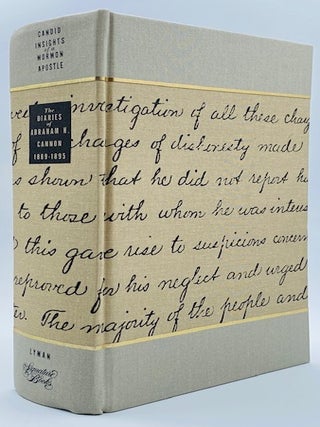 CANDID
INSIGHTS
of a
MORMON
APOSTLE
The
DIARIES
of
ABRAHAM H.
CANNON
1889-1895
LYMAN
Signature
Books
investigation of all these
of charges of dishonesty made
s shown that he did not report
to those with whom he was
this gave rise to suspicions
reproved for his neglect and urged
The majority of the people and